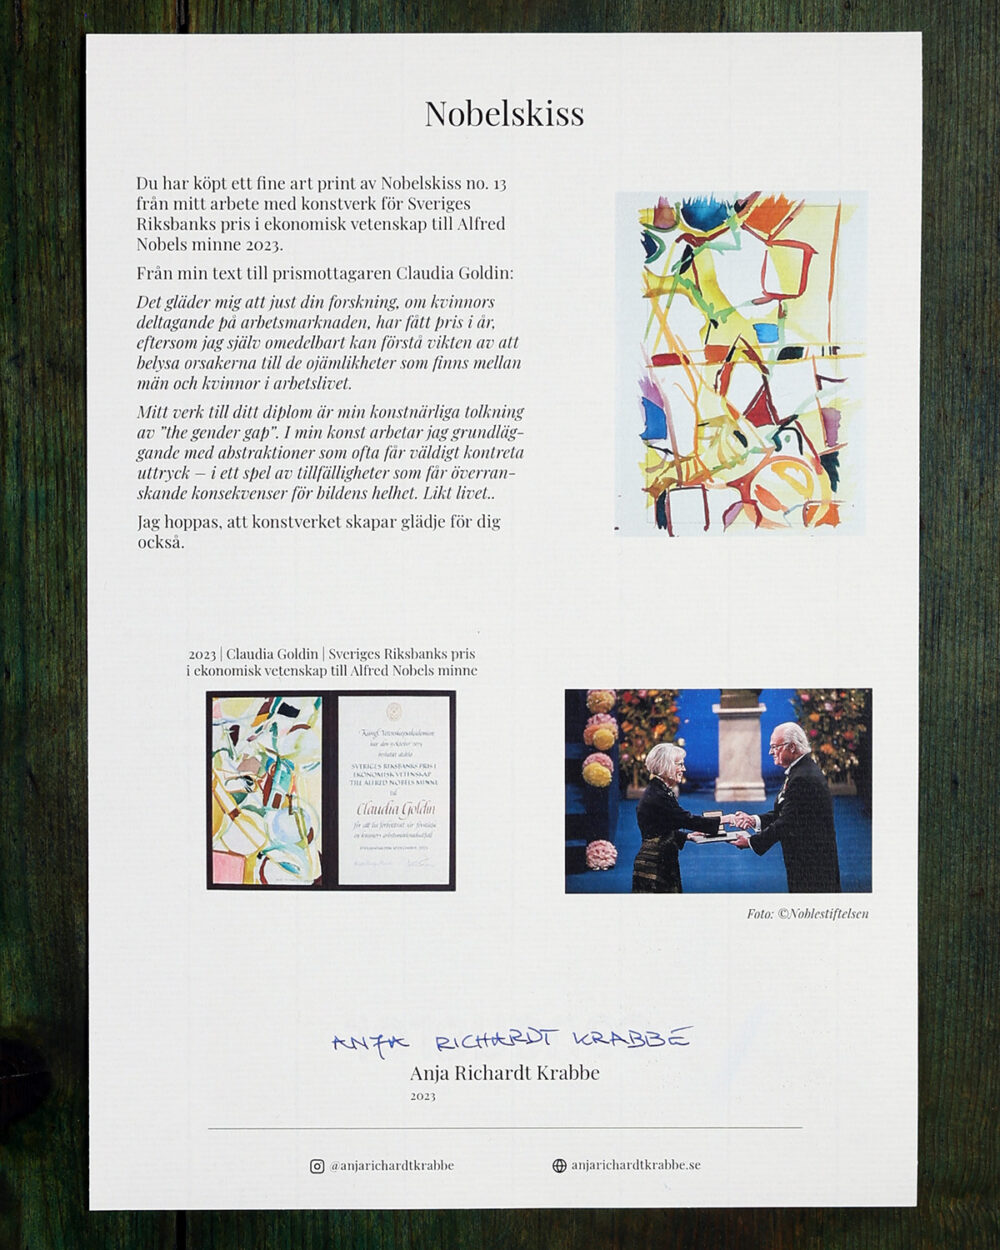 Nobelskiss
Du har köpt ett fine art print av Nobelskiss no. 13
från mitt arbete med konstverk för Sveriges
Riksbanks pris i ekonomisk vetenskap till Alfred
Nobels minne 2023.
Från min text till prismottagaren Claudia Goldin:
Det gläder mig att just din forskning, om kvinnors
deltagande på arbetsmarknaden, har fått pris i år,
eftersom jag själv omedelbart kan förstå vikten av att
belysa orsakerna till de ojämlikheter som finns mellan
män och kvinnor i arbetslivet.
Mitt verk till ditt diplom är min konstnärliga tolkning
av ”the gender gap”. I min konst arbetar jag grundläg-
gande med abstraktioner som ofta får väldigt kontreta
uttryck – i ett spel av tillfälligheter som får överran-
skande konsekvenser för bildens helhet. Likt livet..
Jag hoppas, att konstverket skapar glädje för dig
också.
2023 | Claudia Goldin | Sveriges Riksbanks pris
i ekonomisk vetenskap till Alfred Nobels minne
Kungl. Vetenskapsakademien
SVERIGES RIKSBANKS PRIS I
EKONOMISK VETENSKAP
TILL ALFRED NOBELS MINNE
till
Claudia Goldin
Foto: ©Noblestiftelsen
ANJA RICHARDT KRABBE
Anja Richardt Krabbe
2023
@anjarichardtkrabbe
anjarichardtkrabbe.se